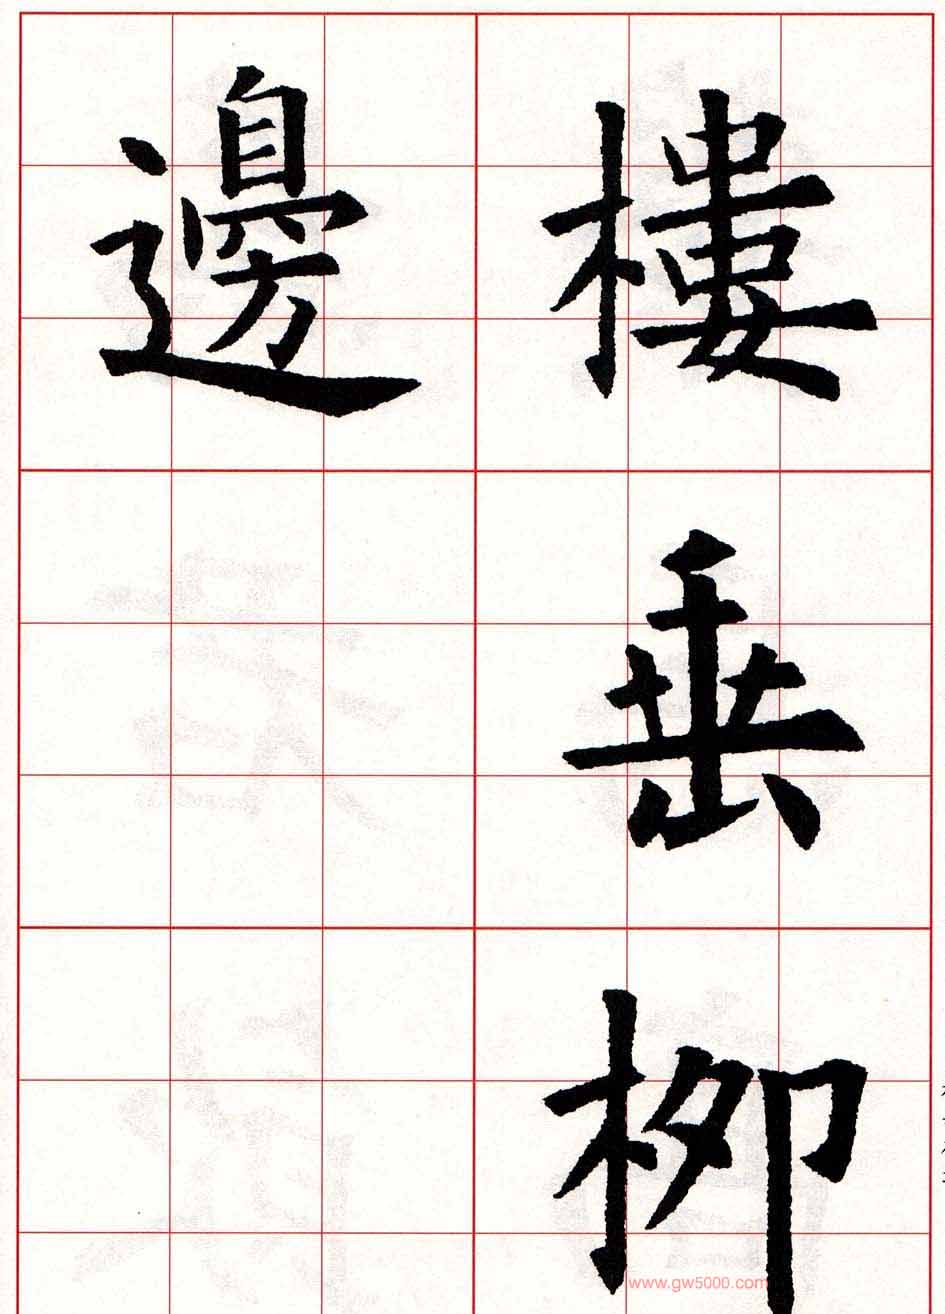 樓垂柳
邊
www.gw5000.com